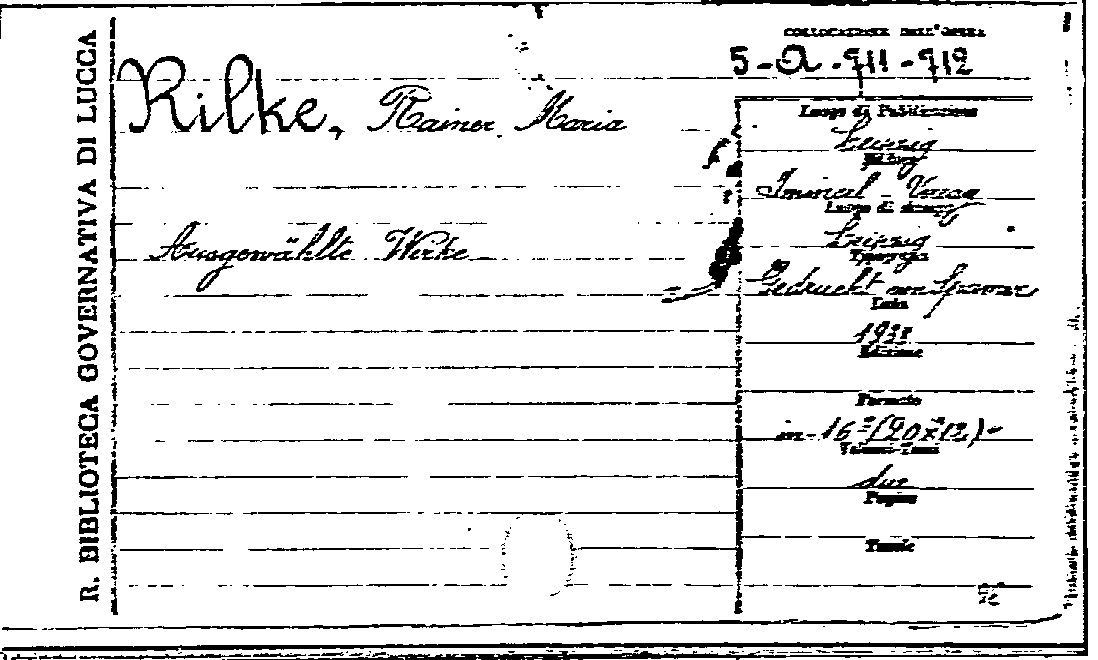 R. BIBLIOTECA GOVERNATIVA DI LUCCA
COLLOCAZIONE DELL'OPERA
5-a-711-712
Rilke, Rainer Maria
Ausgewählte Werke
Luogo di Pubblicazione
Leipzig
Luogo di stampa
Leipzig
Tipografia
Gedruckt von Spamer
Data
Edizione
Formato
in-16º(20x12)-
due
Pagine
Tavole